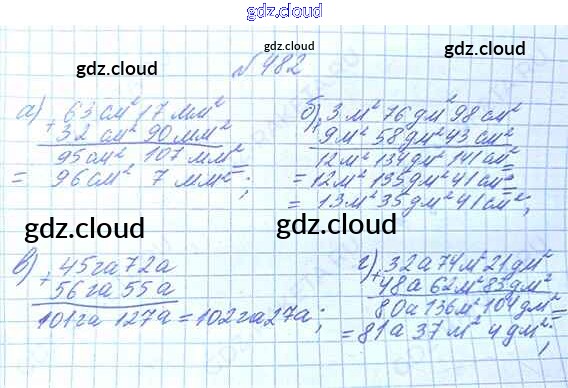 gdz.cloud
gdz.cloud
№482
gdz.cloud
а) + 63 см² 17 мм²
32 см² 90 мм²
95 см² 107 мм² =
= 96 см² 7 мм²;
б) + 3 м² 76 дм² 98 см²
9 м² 58 дм² 43 см²
12 м² 134 дм² 141 см² =
= 12 м² 135 дм² 41 см² =
= 13 м² 35 дм² 41 см²;
gdz.cloud
gdz.cloud
в) + 45 га 72 а
56 га 55 а
101 га 127 а = 102 га 27 а;
г) + 32 а 74 м² 21 дм²
48 а 62 м² 83 дм²
80 а 136 м² 104 дм² =
= 81 а 37 м² 4 дм²;
gdz.cloud
gdz.cloud